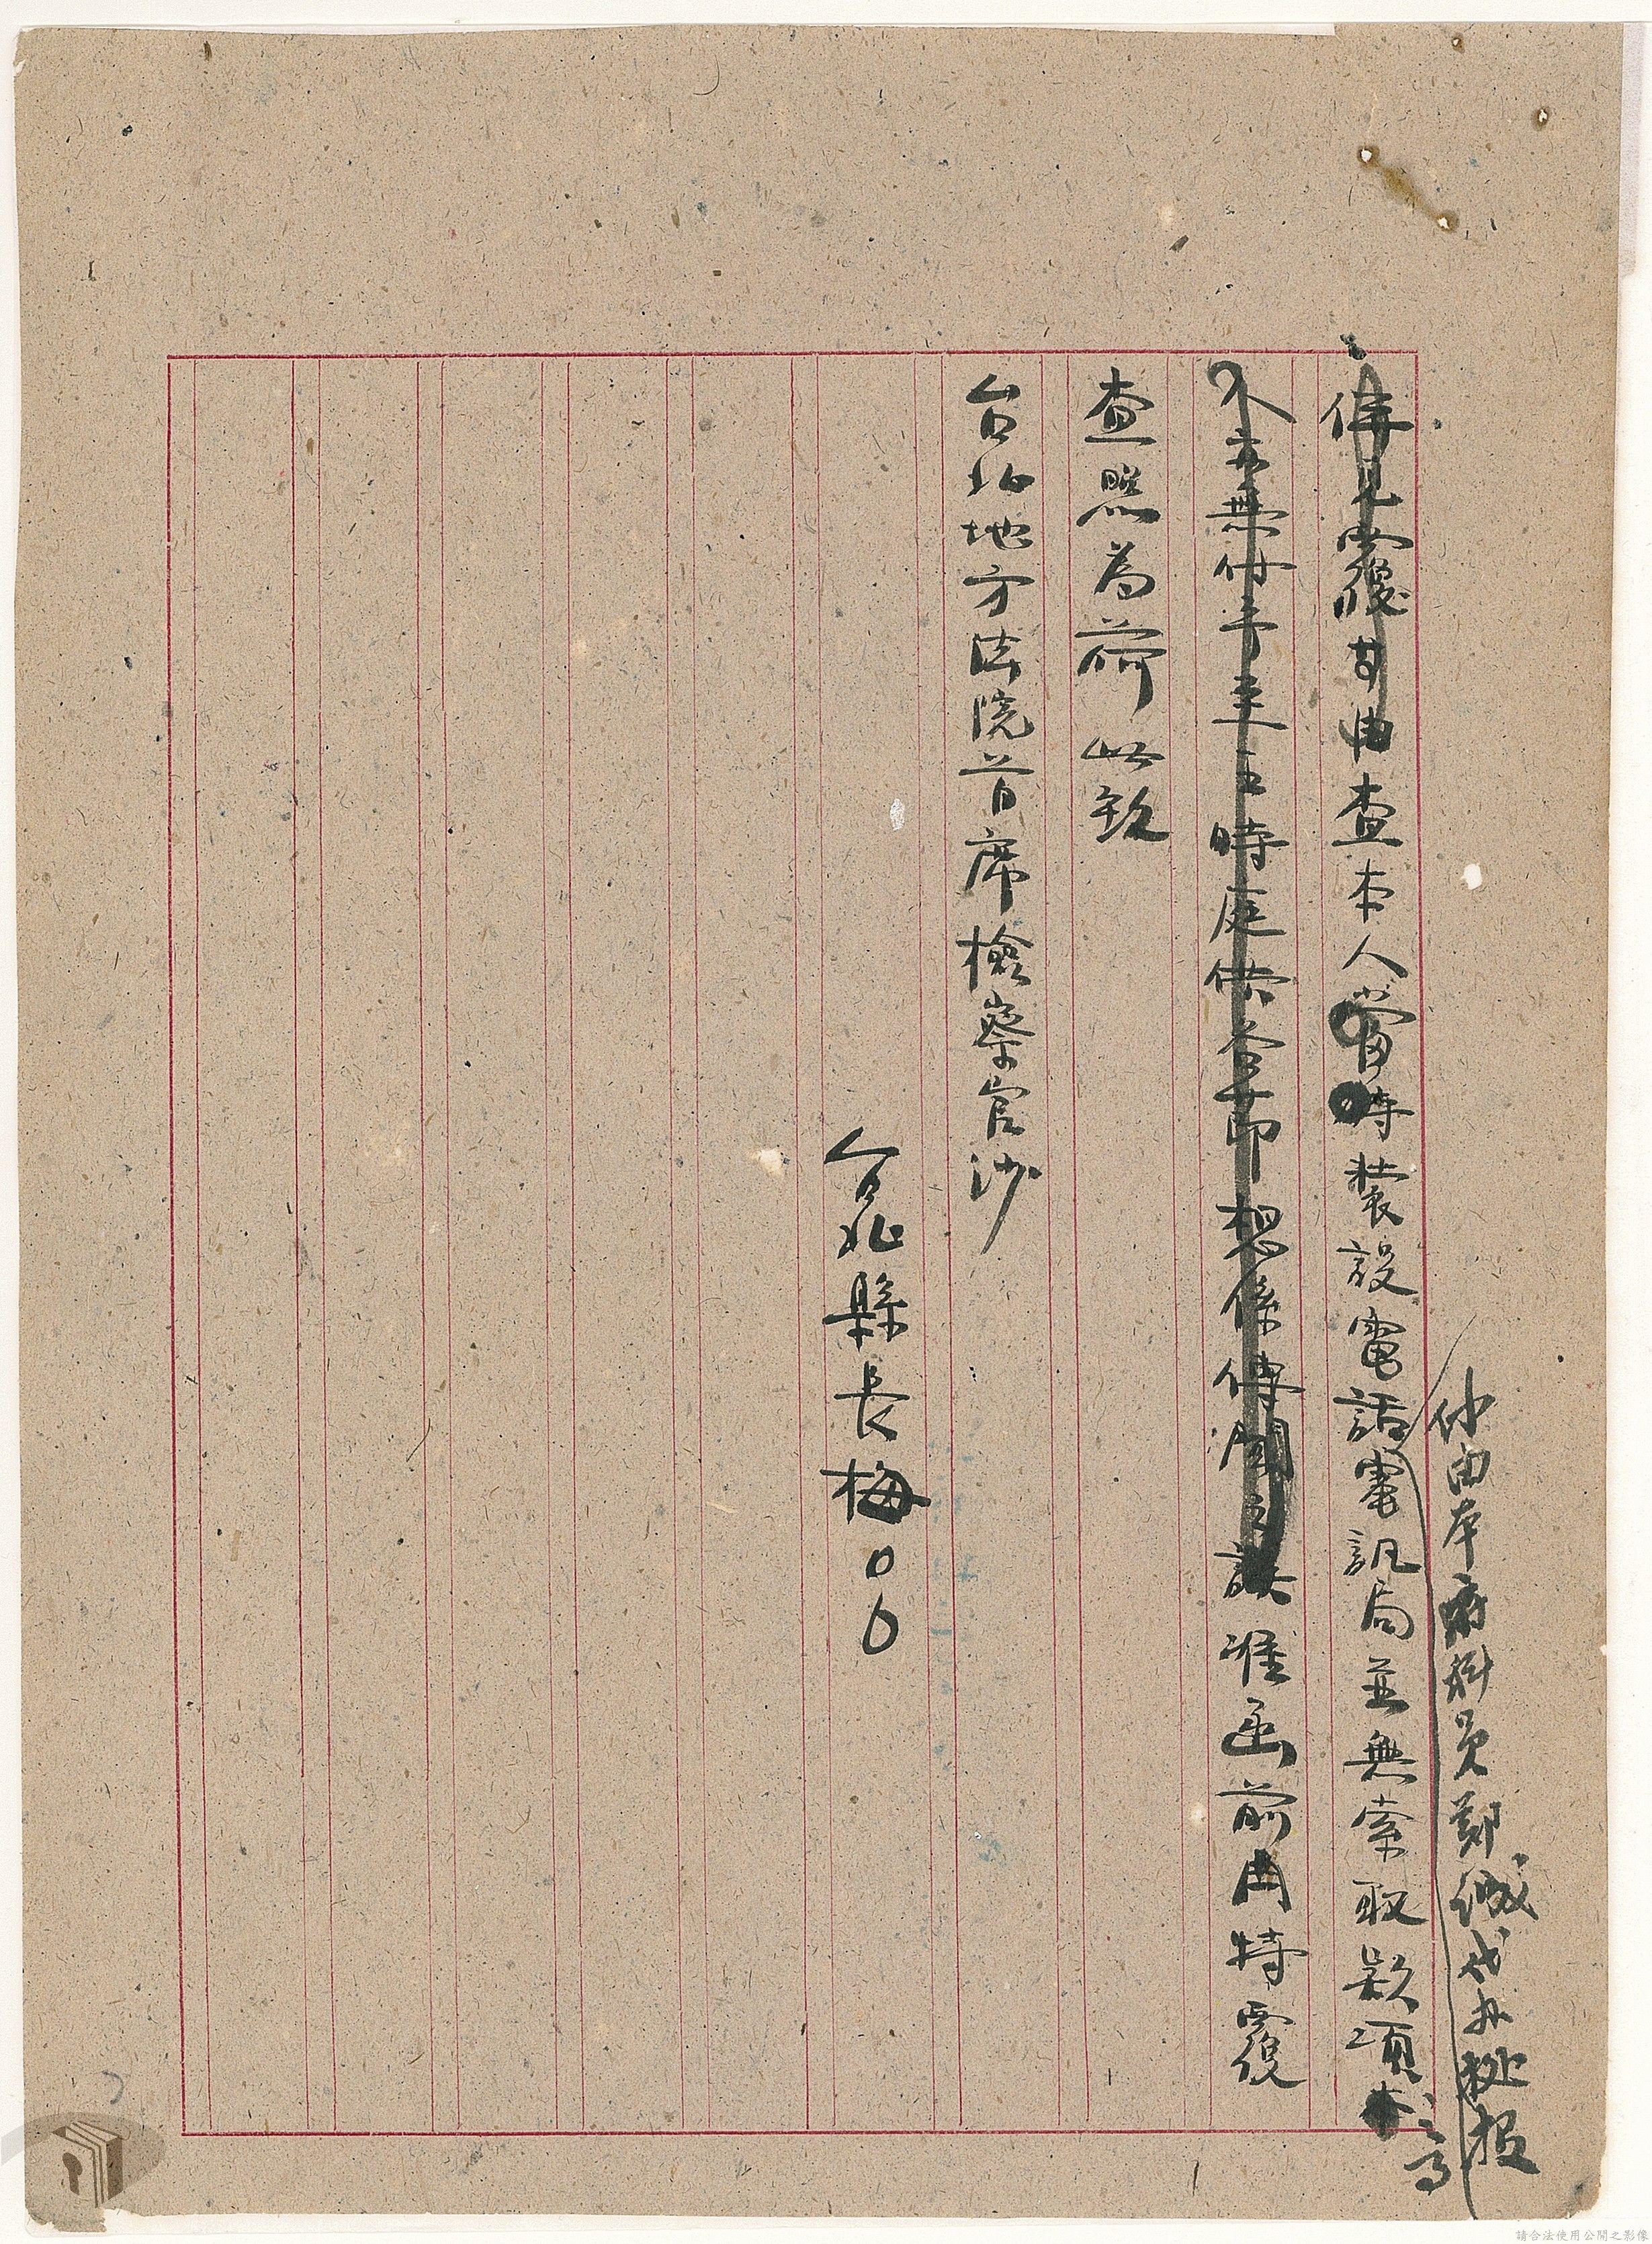 係由本府科員鄭誠代办據报
俾見覆等由查本人當時裝設電話電訊局並無索取款項
人亦無付予主任時庭供各節想係傳聞之誤准函前由特覆
查照為荷此致
台北地方法院首席檢察官沙
台北縣長梅00
請合法使用公開之影像